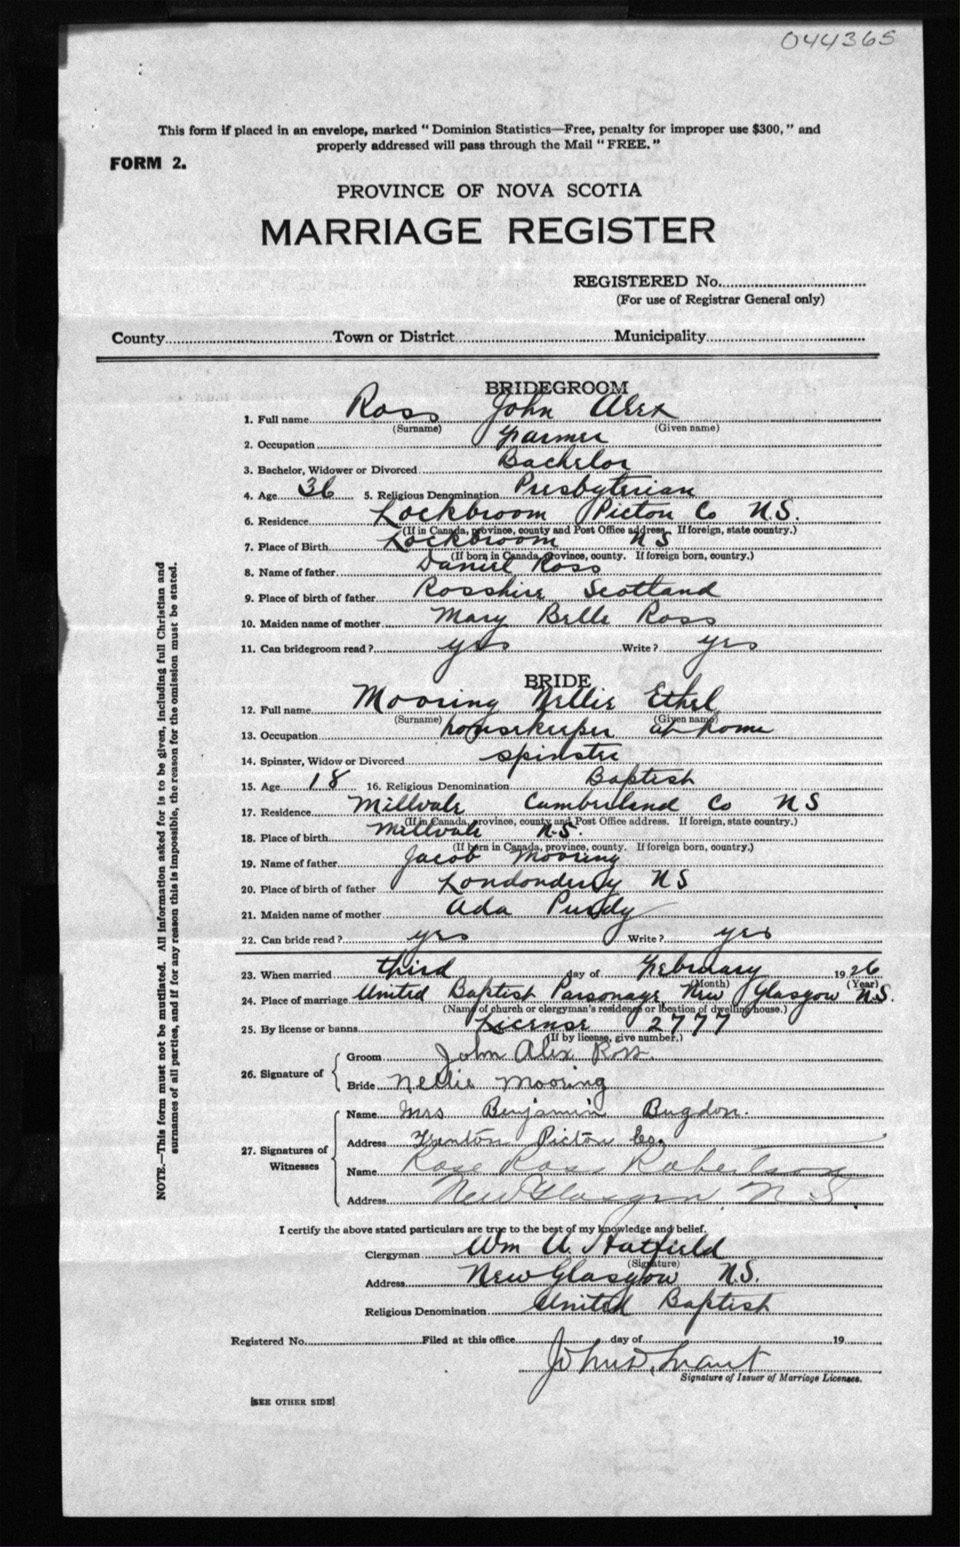 044365
This form if placed in an envelope, marked "Dominion Statistics—Free, penalty for improper use $300," and
properly addressed will pass through the Mail "FREE."
FORM 2.
PROVINCE OF NOVA SCOTIA
MARRIAGE REGISTER
REGISTERED No.
(For use of Registrar General only)
County Town or District Municipality
BRIDEGROOM
1. Full name Ross John Alex
(Surname) (Given name)
2. Occupation Farmer
3. Bachelor, Widower or Divorced Bachelor
4. Age 36 5. Religious Denomination Presbyterian
6. Residence Lockbroom Pictou Co N.S.
(If in Canada, province, county and Post Office address. If foreign, state country.)
7. Place of Birth Lockbroom N S
(If born in Canada, province, county. If foreign born, country.)
8. Name of father Daniel Ross
9. Place of birth of father Rosshire Scotland
10. Maiden name of mother Mary Belle Ross
11. Can bridegroom read? yes Write? yes
BRIDE
12. Full name Mooring Nellie Ethel
(Surname) (Given name)
13. Occupation housekeeper at home
14. Spinster, Widow or Divorced spinster
15. Age 18 16. Religious Denomination Baptist
17. Residence Millvale Cumberland Co N S
(If in Canada, province, county and Post Office address. If foreign, state country.)
18. Place of birth Millvale N.S.
(If born in Canada, province, county. If foreign born, country.)
19. Name of father Jacob Mooring
20. Place of birth of father Londonderry N S
21. Maiden name of mother Ada Purdy
22. Can bride read? yes Write? yes
23. When married third day of February 1926
(Month) (Year)
24. Place of marriage United Baptist Parsonage New Glasgow N.S.
(Name of church or clergyman's residence or location of dwelling house.)
25. By license or banns License 2777
(If by license, give number.)
26. Signature of
Groom John Alex Ross
Bride Nellie Mooring
27. Signatures of Witnesses
Name Mrs Benjamin Bugdon.
Address Trenton Pictou Co.
Name Rose Ross Robertson
Address New Glasgow N S.
I certify the above stated particulars are true to the best of my knowledge and belief.
Clergyman Wm A. Hatfield
(Signature)
Address New Glasgow N.S.
Religious Denomination United Baptist
Registered No. Filed at this office day of 19
John Grant
Signature of Issuer of Marriage Licenses.
[SEE OTHER SIDE]
NOTE.—This form must not be mutilated. All information asked for is to be given, including full Christian and
surnames of all parties, and if for any reason this is impossible, the reason for the omission must be stated.